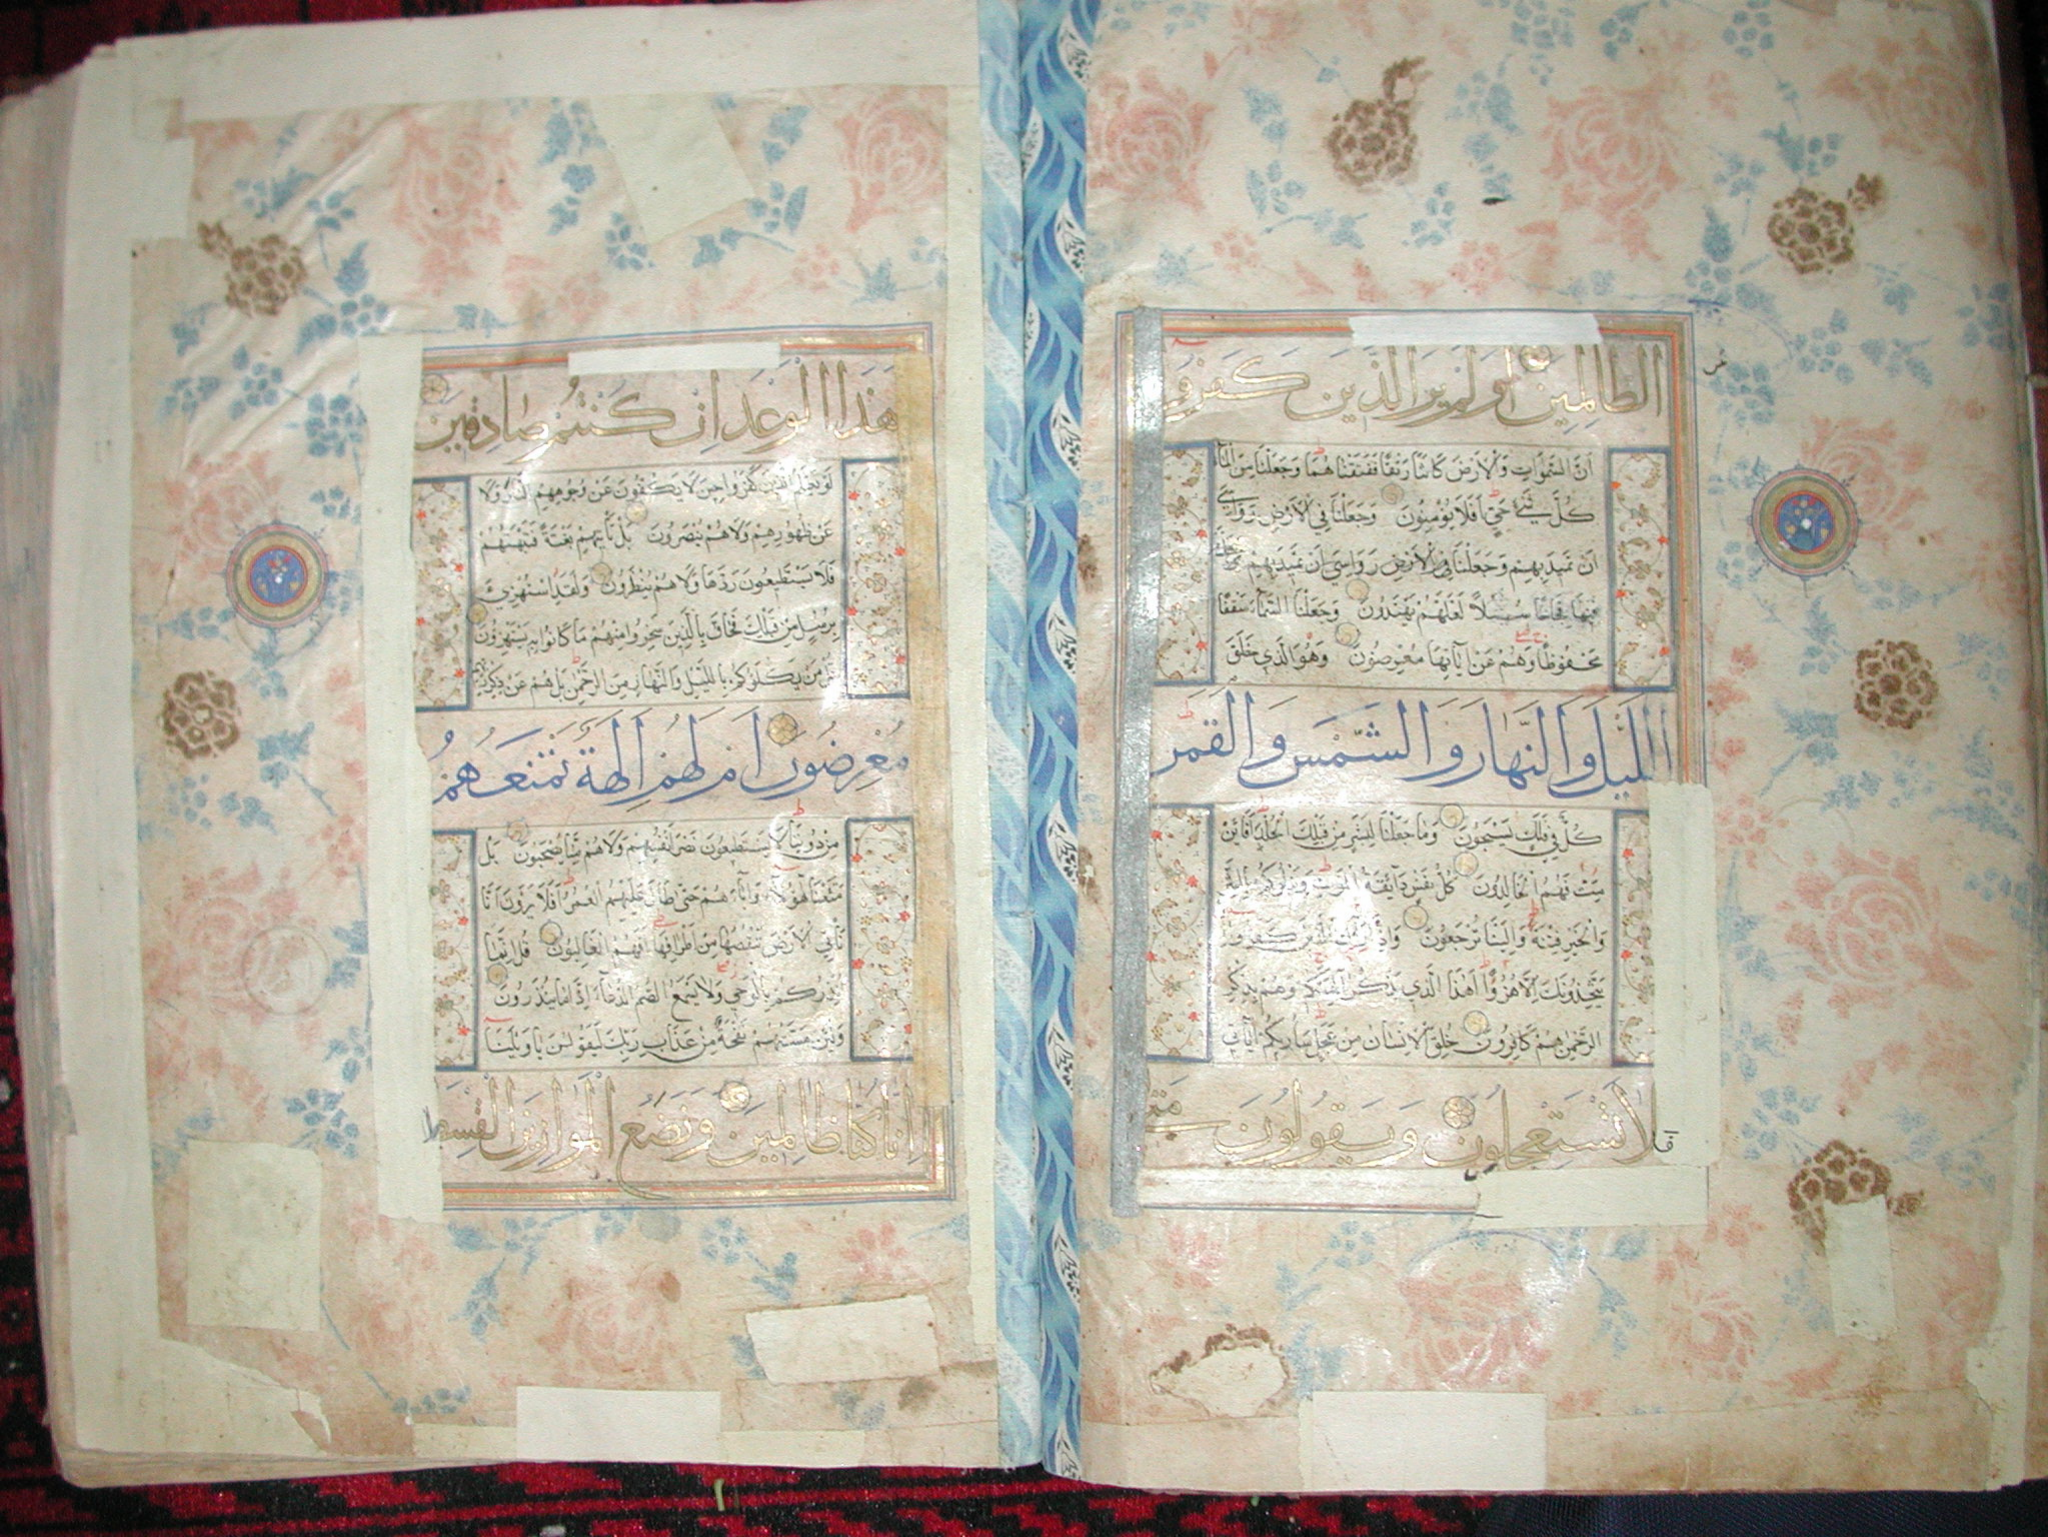 الظالمين اولم ير الذين كفروا
ان السموات والارض كانتا رتقا ففتقناهما وجعلنا من الماء
كل شئ حي افلا يؤمنون وجعلنا في الارض رواسي
ان تميد بهم وجعلنا في الارض رواسي ان تميد بهم وجعلنا
فيها فجاجا سبلا لعلهم يهتدون وجعلنا السماء سقفا
محفوظا وهم عن آياتها معرضون وهو الذي خلق
الليل والنهار والشمس والقمر
كل في فلك يسبحون وما جعلنا لبشر من قبلك الخلد افائن
مت فهم الخالدون كل نفس ذائقة الموت ونبلوكم
والخير فتنة والينا ترجعون واذا كفروا
يتخذونك الا هزوا اهذا الذي يذكر آلهتكم وهم بذكر
الرحمن هم كافرون خلق الانسان من عجل ساريكم آياتي
فلا تستعجلون ويقولون متى
هذا الوعد ان كنتم صادقين
لو يعلم الذين كفروا حين لا يكفون عن وجوههم النار ولا
عن ظهورهم ولا هم ينصرون بل تأتيهم بغتة فتبهتهم
فلا يستطيعون ردها ولا هم ينظرون ولقد استهزئ
برسل من قبلك فحاق بالذين سخروا منهم ما كانوا به يستهزؤن
قل من يكلؤكم بالليل والنهار من الرحمن بل هم عن ذكر ربهم
معرضون ام لهم الهة تمنعهم
من دوننا لا يستطيعون نصر انفسهم ولا هم منا يصحبون بل
متعنا هؤلاء وآباءهم حتى طال عليهم العمر افلا يرون انا
نأتي الارض ننقصها من اطرافها افهم الغالبون قل انما
انذركم بالوحي ولا يسمع الصم الدعاء اذا ما ينذرون
ولئن مستهم نفحة من عذاب ربك ليقولن يا ويلنا
انا كنا ظالمين ونضع الموازين القسط